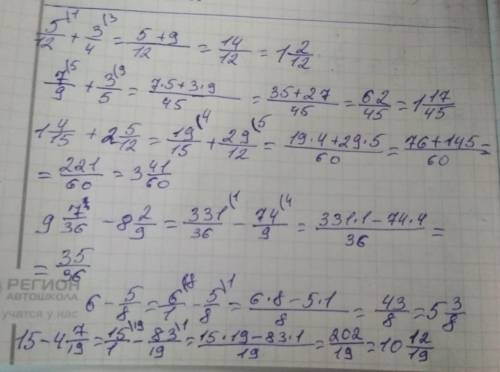 5/12\1 + 3/4\3 = (5+9)/12 = 14/12 = 1 2/12
7/9\5 + 3/5\9 = (7·5+3·9)/45 = (35+27)/45 = 62/45 = 1 17/45
1 4/15 + 2 5/12 = 19/15\4 + 29/12\5 = (19·4+29·5)/60 = (76+145)/60 =
= 221/60 = 3 41/60
9 7/36 - 8 2/9 = 331/36\1 - 74/9\4 = (331·1-74·4)/36 =
= 35/36
РЕГИОН
АВТОШКОЛА
учатся у нас
6 - 5/8 = 6/1\8 - 5/8\1 = (6·8-5·1)/8 = 43/8 = 5 3/8
15 - 4 7/19 = 15/1\19 - 83/19\1 = (15·19-83·1)/19 = 202/19 = 10 12/19